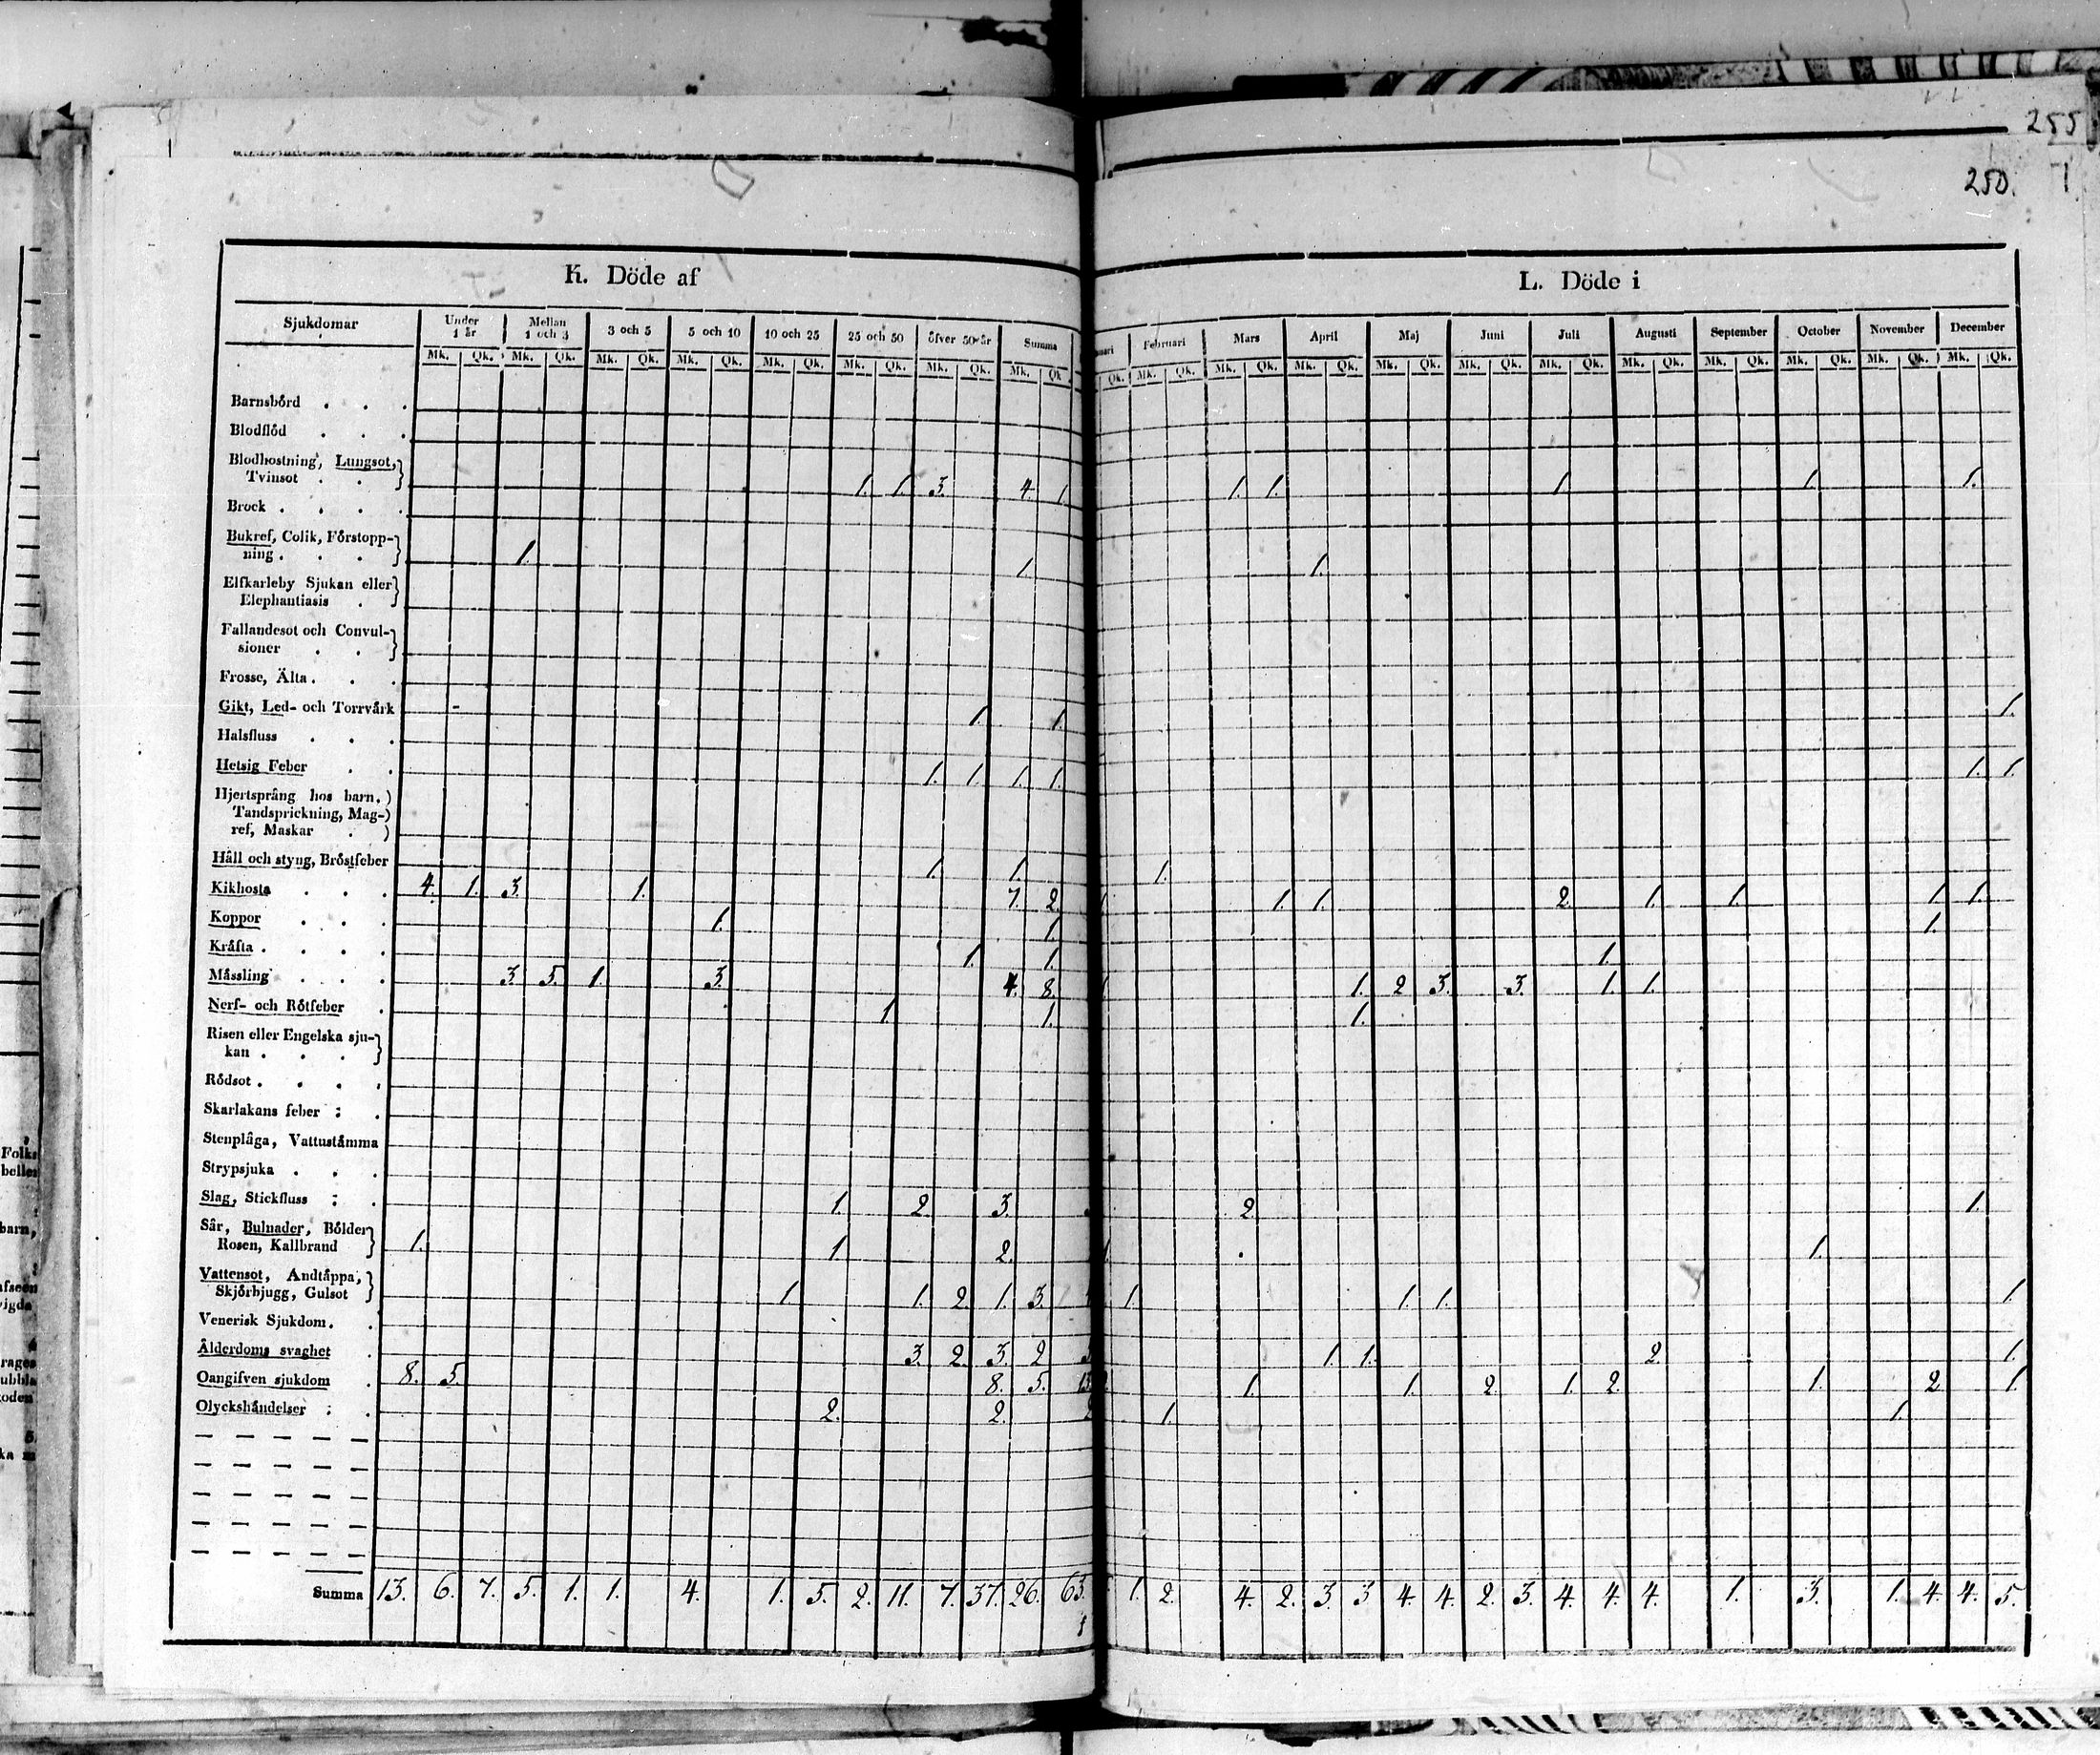 255
250.
K. Döde af
L. Döde i
Sjukdomar Under 1 år Mellan 1 och 3 3 och 5 5 och 10 10 och 25 25 och 50 öfver 50 år Summa Februari Mars April Maj Juni Juli Augusti September October November December
Mk. Qk. Mk. Qk. Mk. Qk. Mk. Qk. Mk. Qk. Mk. Qk. Mk. Qk. Mk. Qk. Qk. Mk. Qk. Mk. Qk. Mk. Qk. Mk. Qk. Mk. Qk. Mk. Qk. Mk. Qk. Mk. Qk. Mk. Qk. Mk. Qk. Mk. Qk.
Barnsbörd . . .
Blodflöd . . .
Blodhostning, Lungsot,
Tvinsot . . 1. 1. 3. 4. 1. 1. 1. 1. 1. 1.
Brock . . . .
Bukref, Colik, Förstopp-
ning . . . 1. 1. 1.
Elfkarleby Sjukan eller
Elephantiasis .
Fallandesot och Convul-
sioner . .
Frosse, Älta . . .
Gikt, Led- och Torrvärk 1. 1. 1.
Halsfluss . . .
Hetsig Feber . . 1. 1. 1. 1. 1. 1.
Hjertsprång hos barn.
Tandsprickning, Mag-
ref, Maskar .
Håll och styng, Bröstfeber 1. 1. 1.
Kikhosta . . . 4. 1. 3. 1. 7. 2. 1. 1. 1. 2. 1. 1. 1. 1.
Koppor . . . 1. 1. 1.
Kräfta . . . . 1. 1. 1.
Mässling . . . 3. 5. 1. 3. 4. 8. 1. 2 3. 3. 1. 1.
Nerf- och Rötfeber . 1. 1. 1.
Risen eller Engelska sju-
kan . . . .
Rödsot . . . .
Skarlakans feber : .
Stenplåga, Vattustämma
Strypsjuka . . .
Slag, Stickfluss : . 1. 2. 3. 2. 1.
Sår, Bulnader, Bölder
Rosen, Kallbrand 1. 1. 2. 1. 1.
Vattensot, Andtäppa,
Skjörbjugg, Gulsot 1. 1. 2. 1. 3. 1. 1. 1. 1.
Venerisk Sjukdom. .
Ålderdoms svaghet . 3. 2. 3. 2 1. 1. 2. 1.
Oangifven sjukdom . 8. 5. 8. 5. 13. 1. 1. 2. 1. 2. 1. 2 1.
Olyckshändelser : . 2. 2. 2 1. 1.
Summa 13. 6. 7. 5. 1. 1. 4. 1. 5. 2. 11. 7. 37. 26. 63. 1. 2. 4. 2. 3. 3 4. 4. 2. 3. 4. 4. 4. 1. 3. 1. 4. 4. 5.